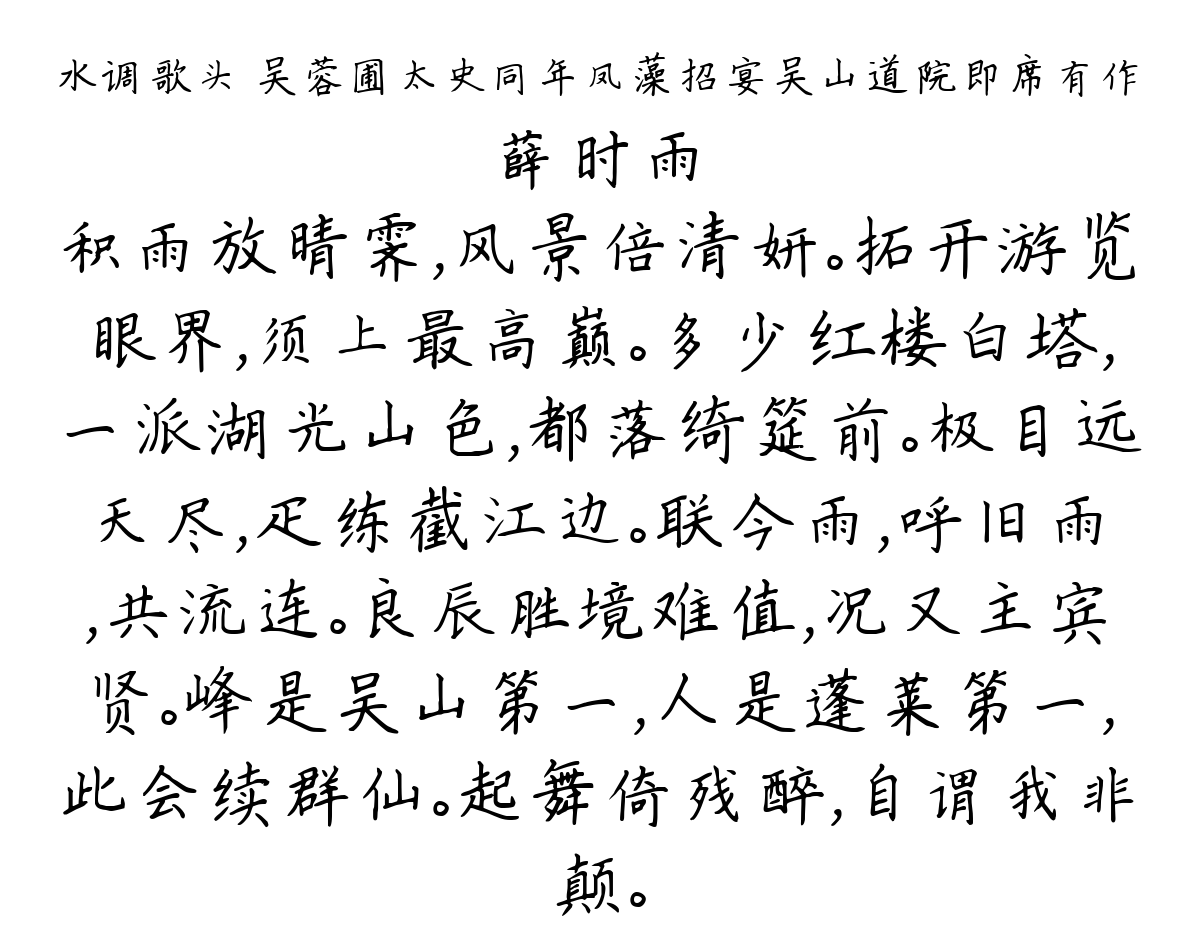 水调歌头 吴蓉圃太史同年凤藻招宴吴山道院即席有作
薛时雨
积雨放晴霁,风景倍清妍。拓开游览
眼界,须上最高巅。多少红楼白塔,
一派湖光山色,都落绮筵前。极目远
天尽,疋练截江边。联今雨,呼旧雨
,共流连。良辰胜境难值,况又主宾
贤。峰是吴山第一,人是蓬莱第一,
此会续群仙。起舞倚残醉,自谓我非
颠。